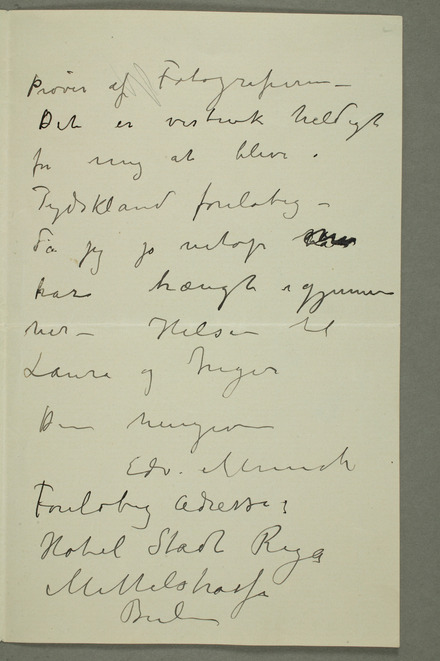 Prøver af Fotografierne –
Det er vistnok heldigt
for mig at blive i
Tydskland foreløbig –
Da jeg jo netop
har trængt igjennem
her – Hilsen til
Laura og Inger
Din hengivne
Edv. Munch
Foreløbig adresse:
Hotel Stadt Riga
Mittelstrasse
Berlin